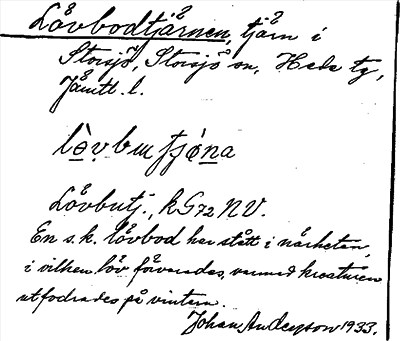 Lövbodtjärnen, tjärn i
Storsjö, Storsjö sn, Hede tg,
Jämtl. l.
lövbutj., kG72 NV.
En s.k. lövbod har stått i närheten,
i vilken löv förvarades, varmed kreaturen
utfodrades på vintern.
Johan Anderson 1933.